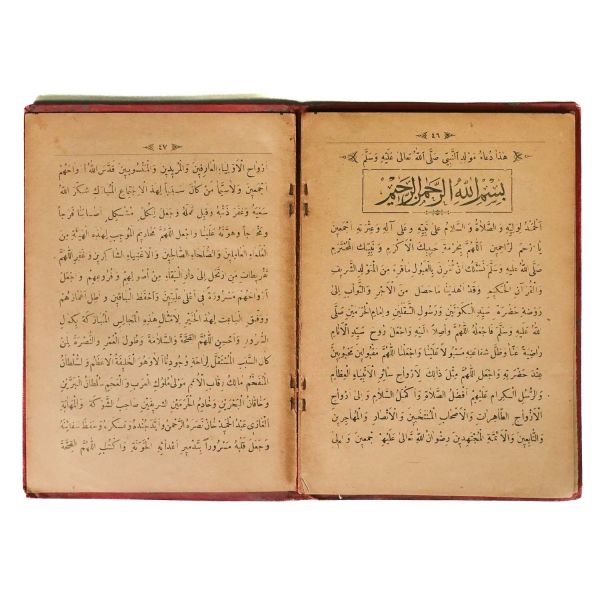 ٤٦
هٰذَا دُعَاءُ مَوْلِدِ النَّبِيِّ صَلَّى اللّٰهُ تَعَالٰى عَلَيْهِ وَسَلَّمَ
بِسْمِ اللّٰهِ الرَّحْمٰنِ الرَّحِيمِ
اَلْحَمْدُ لِوَلِيِّهِ وَ الصَّلَاةُ وَ السَّلَامُ عَلٰى نَبِيِّهِ وَ عَلٰى آلِهِ وَ عِتْرَتِهِ اَجْمَعِينَ
يَا اَرْحَمَ الرَّاحِمِينَ اَللّٰهُمَّ بِحُرْمَةِ حَبِيبِكَ الْاَكْرَمِ وَ نَبِيِّكَ الْمُحْتَرَمِ
صَلَّى اللّٰهُ عَلَيْهِ وَسَلَّمَ نَسْئَلُكَ اَنْ تُقَرِّنَ بِالْقَبُولِ مَاقُرِءَ مِنَ الْمَوْلِدِ الشَّرِيفِ
وَ الْقُرْآنِ الْحَكِيمِ وَ قَدْ اَهْدَيْنَا مَاحَصَلَ مِنَ الْاَجْرِ وَ الثَّوَابِ اِلٰى
رَوْضَةِ حَضْرَةِ سَيِّدِ الْكَوْنَيْنِ وَ رَسُولِ الثَّقَلَيْنِ وَ اِمَامِ الْحَرَمَيْنِ صَلَّى
اللّٰهُ عَلَيْهِ وَسَلَّمَ فَاجْعَلْهُ اللّٰهُمَّ وَاصِلاً اِلَيْهِ وَ اجْعَلْ رُوحَ سَيِّدِ الْاَنَامِ
رَاضِيَةً عَنَّا وَ ظِلَّ شَفَاعَتِهِ مَسْبُولاً عَلَيْنَا وَ اجْعَلْنَا اللّٰهُمَّ مَقْبُولِينَ مَحْبُوبِينَ
عِنْدَ حَضْرَتِهِ وَ اجْعَلِ اللّٰهُمَّ مِثْلَ ذٰلِكَ لِاَرْوَاحِ سَائِرِ الْاَنْبِيَاءِ الْعِظَامِ
وَ الرُّسُلِ الْكِرَامِ عَلَيْهِمْ اَفْضَلُ الصَّلَاةِ وَ اَكْمَلُ السَّلَامِ وَ اِلٰى اَرْوَاحِ
الْاَزْوَاجِ الطَّاهِرَاتِ وَ الْاَصْحَابِ الْمُنْتَخَبِينَ وَ الْاَنْصَارِ وَ الْمُهَاجِرِينَ
وَ التَّابِعِينَ وَ الْاَئِمَّةِ الْمُجْتَهِدِينَ رِضْوَانُ اللّٰهِ تَعَالٰى عَلَيْهِمْ اَجْمَعِينَ وَ اِلٰى
٤٧
اَرْوَاحِ الْاَوْلِيَاءِ الْعَارِفِينَ وَ الْمُرِيدِينَ وَ الْمَنْسُوبِينَ قَدَّسَ اللّٰهُ اَرْوَاحَهُمْ
اَجْمَعِينَ وَ لَاسِيَّمَا مَنْ كَانَ سَبَباً لِهٰذَا الْاِجْتِمَاعِ الْمُبَارَكِ شَكَرَ اللّٰهُ
سَعْيَهُ وَ غَفَرَ ذَنْبَهُ وَ قَبِلَ عَمَلَهُ وَ جَعَلَ لِكُلِّ مُشْكِلٍ فَرَجاً
وَ مَخْرَجاً عَلَيْنَا وَ اجْعَلِ اللّٰهُمَّ لِهٰذِهِ الْهَيْئَةِ مِنَ
الْعُلَمَاءِ الْعَامِلِينَ وَ الصُّلَحَاءِ الصَّالِحِينَ وَ الْاَغْنِيَاءِ الشَّاكِرِينَ وَ اغْفِرِ اللّٰهُمَّ
مَنْ اِلٰى دَارِ الْبَقَاءِ مِنْ اُصُولِهِمْ وَ فُرُوعِهِمْ وَ اجْعَلْ
اَرْوَاحَهُمْ مَسْرُورَةً فِي اَعْلٰى عِلِّيِّينَ وَ احْفَظِ الْبَاقِينَ وَ اَطِلْ اَعْمَارَهُمْ
وَ وَفِّقِ الْبَاعِثَ لِهٰذَا الْخَيْرِ لِاَمْثَالِ هٰذِهِ الْمَجَالِسِ الْمُبَارَكَةِ
السُّرُورِ وَ اَحْسِنِ اللّٰهُمَّ الصِّحَّةَ وَ السَّلَامَةَ وَ طُولَ الْعُمْرِ وَ النُّصْرَةَ لِمَنْ
كَانَ السَّبَبَ الْمُسْتَقِلَّ لِرَاحَةِ وُجُودِنَا اَلَا وَهُوَ الْخَلِيفَةُ الْاَعْظَمُ وَ السُّلْطَانُ
الْمُفَخَّمُ مَالِكُ رِقَابِ الْاُمَمِ مَوْلٰى مُلُوكِ الْعَرَبِ وَ الْعَجَمِ سُلْطَانُ الْبَرَّيْنِ
وَ خَاقَانُ الْبَحْرَيْنِ وَ خَادِمُ الْحَرَمَيْنِ الشَّرِيفَيْنِ صَاحِبُ الشَّوْكَةِ وَ الْمَهَابَةِ
الْغَازِي عَبْدُ الْحَمِيدِ خَانْ نَصَرَهُ الرَّحْمٰنُ وَ اَيَّدَ جُنْدَهُ وَ عَسْكَرَهُ وَ حَفِظَ
وَ جَعَلَ قَلْبَهُ مَسْرُوراً بِتَدْمِيرِ اَعْدَائِهِ وَ اكْتُبِ اللّٰهُمَّ الصِّحَّةَ